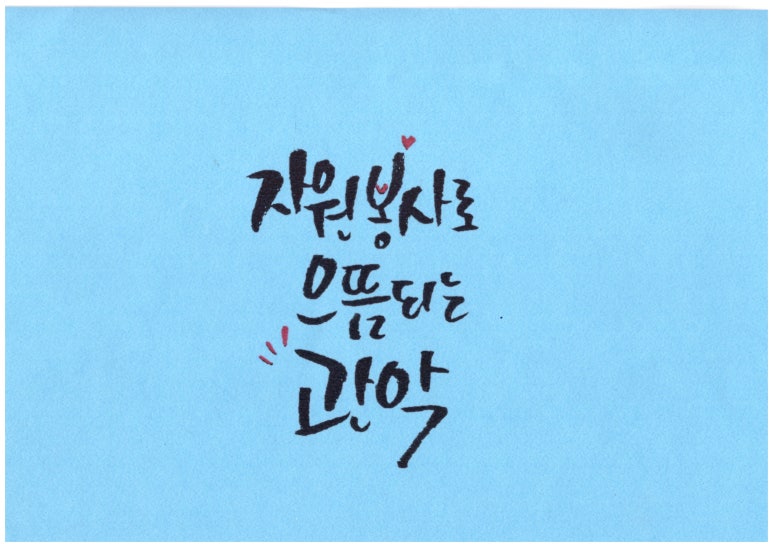 자원봉사로
으뜸되는
관악